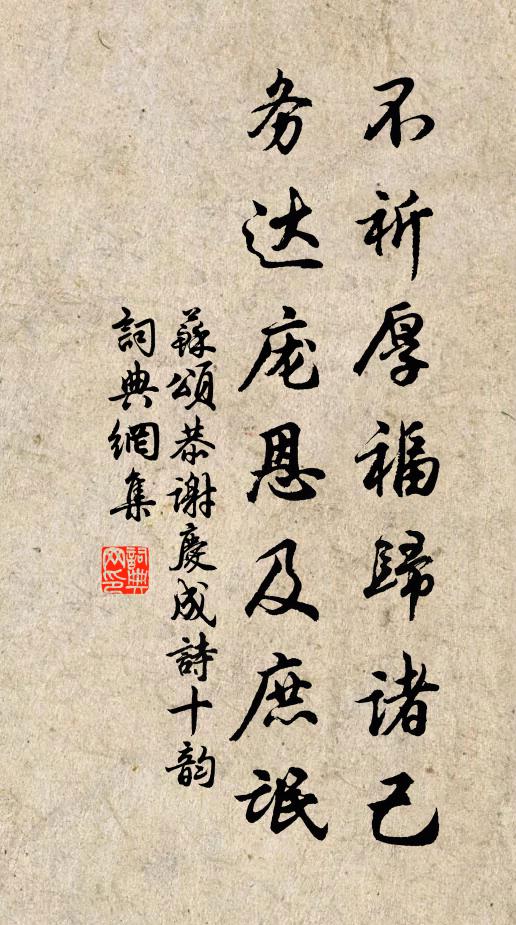 不祈厚福歸诸己
务达庞恩及庶氓
蘇頌恭谢慶成詩十韵
詞典網集
詞典
网印